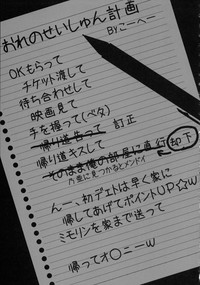 おれのせいしゅん計画
BYこーへー
OKもらって
チケット渡して
待ち合わせして
映画見て
手を握って(ベタ)
帰り道送って 訂正
帰り道キスして
そのまま俺の部屋に直行 却下
乃亜に見つかるとメンドイ
んー、初デートは早く家に
帰してあげてポイントUP☆W
ミモリンを家まで送って
帰ってオ○ニーW